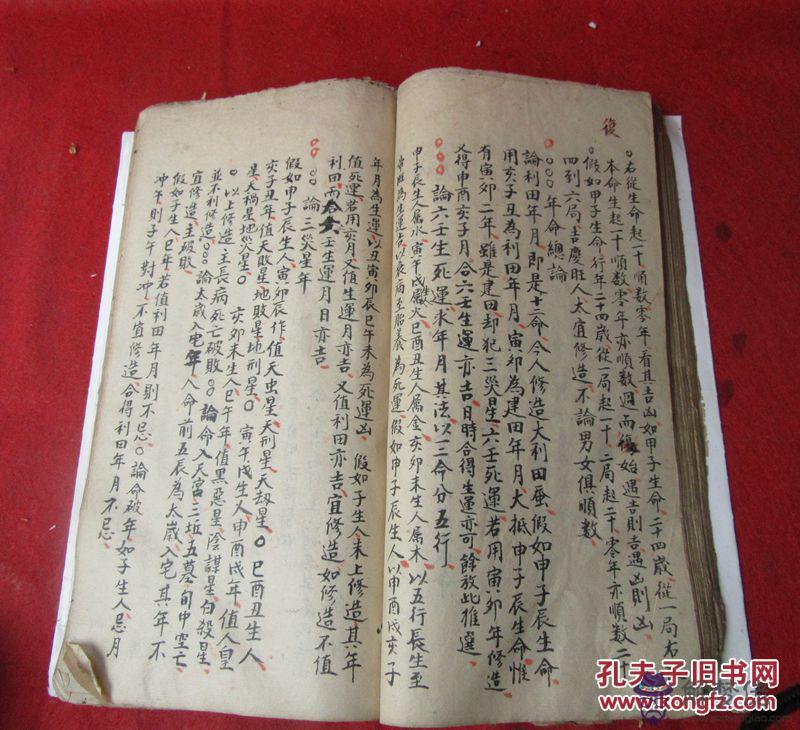 復
右從生命起一十順数零年看其吉凶如甲子生命二十四歲從一局右
本命生起一十順数零年亦順数週而復始遇吉則吉遇凶則凶
假如甲子生命行年二十四歲從一局起一十二局起二十零年亦順数二十
四到六局吉慶旺人大宜修造不論男女俱順数
年命總論
論利田年月即是十二命今人修造大利田蚕假如申子辰生命惟
用亥子丑為利田年月寅卯為建田年月大抵申子辰生命
有寅卯二年雖是建田却犯三災星六壬死運若用寅卯年修造
又得申酉亥子月合六壬生運亦吉日時合得生運亦可餘放此推選
論六壬生死運求年月其法以三命分五行
申子辰生人属水寅午戌属火巳酉丑生人属金亥卯未生人属木以五行長生至
帝旺為生運右以衰病至胎養為死運假如申子辰生人以申酉戌亥子
年月為生運以丑寅卯辰巳午未為死運凶假如子生人未上修造其年
值死運若用亥月又值生運月亦吉又值利田亦吉宜修造如修造不值
利田而六壬生運月日亦吉
論三災星年
假如申子辰生人寅卯辰作值天虫星天刑星天刼星巳酉丑生人
亥子丑年值天敗星地敗星地刑星寅午戌生人申酉戌年值人皇
星天禍星地災星亥卯未生人巳午年值黑惡星陰謀星白殺星
以上修造主長病死亡破敗論命入天宮三坵五墓旬中空亡
並不利修造論太歲入宅年人命前五辰為太歲入宅其年不
宜修造主破敗
假如子生人巳年若值利田年月則不忌論命破年如子生人忌月
冲午則子午對冲不宜修造合得利田年月不忌
孔夫子旧书网
www.kongfz.com